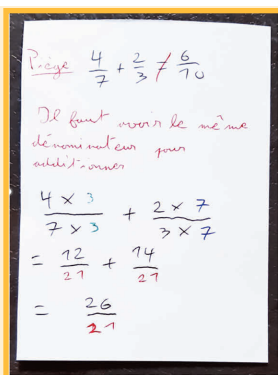 Piège 4/7 + 2/3 ≠ 6/10
Il faut avoir le même
dénominateur pour
additionner
4 × 3 / 7 × 3 + 2 × 7 / 3 × 7
= 12/21 + 14/21
= 26/21